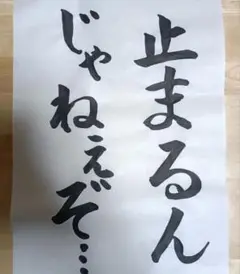 止まるん
じゃねぇぞ…